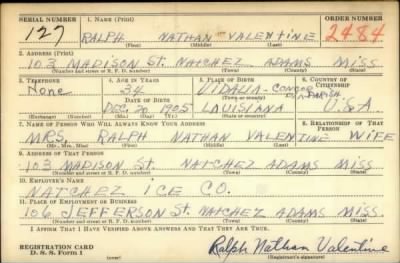 SERIAL NUMBER 1. NAME (Print) ORDER NUMBER
127 RALPH NATHAN VALENTINE 2484
(First) (Middle) (Last)
2. ADDRESS (Print)
103 MADISON ST. NATCHEZ ADAMS MISS
(Number and street or R. F. D. number) (Town) (County) (State)
3. TELEPHONE 4. AGE IN YEARS 5. PLACE OF BIRTH 6. COUNTRY OF CITIZENSHIP
None 34 VIDALIA - CONCORDIA PARISH
(Town or county)
DATE OF BIRTH
DEC. 20 1905 LOUISIANA U.S.A
(Exchange) (Number) (Mo.) (Day) (Yr.) (State or country)
7. NAME OF PERSON WHO WILL ALWAYS KNOW YOUR ADDRESS 8. RELATIONSHIP OF THAT PERSON
MRS. RALPH NATHAN VALENTINE WIFE
(Mr., Mrs., Miss) (First) (Middle) (Last)
9. ADDRESS OF THAT PERSON
103 MADISON ST. NATCHEZ ADAMS MISS
(Number and street or R. F. D. number) (Town) (County) (State)
10. EMPLOYER'S NAME
NATCHEZ ICE CO.
11. PLACE OF EMPLOYMENT OR BUSINESS
106 JEFFERSON ST. NATCHEZ ADAMS MISS.
(Number and street or R. F. D. number) (Town) (County) (State)
I AFFIRM THAT I HAVE VERIFIED ABOVE ANSWERS AND THAT THEY ARE TRUE.
REGISTRATION CARD
D. S. S. FORM 1
Ralph Nathan Valentine
(Registrant's signature)